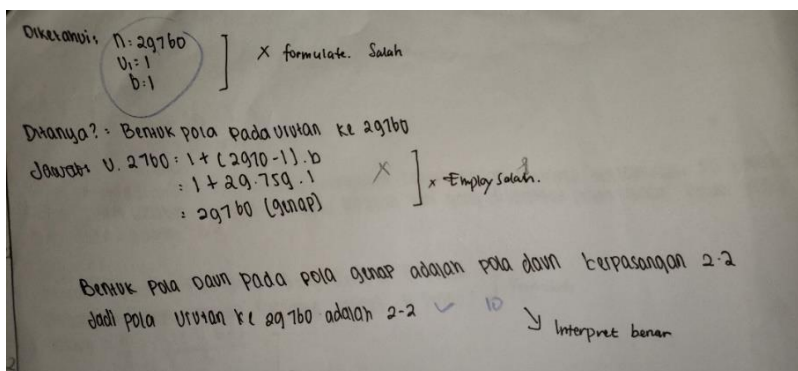 Diketahui: n: 29760
U1: 1
b: 1
x formulate. Salah
Ditanya?: Bentuk pola pada urutan ke 29760
Jawab: U. 2760: 1 + (2970-1).b
: 1 + 29.759.1
: 29760 (genap)
x
x Employ Salah.
Bentuk Pola Daun Pada pola genap adalah pola daun berpasangan 2-2
Jadi pola urutan ke 29760 adalah 2-2 ✓ 10
Interpret benar